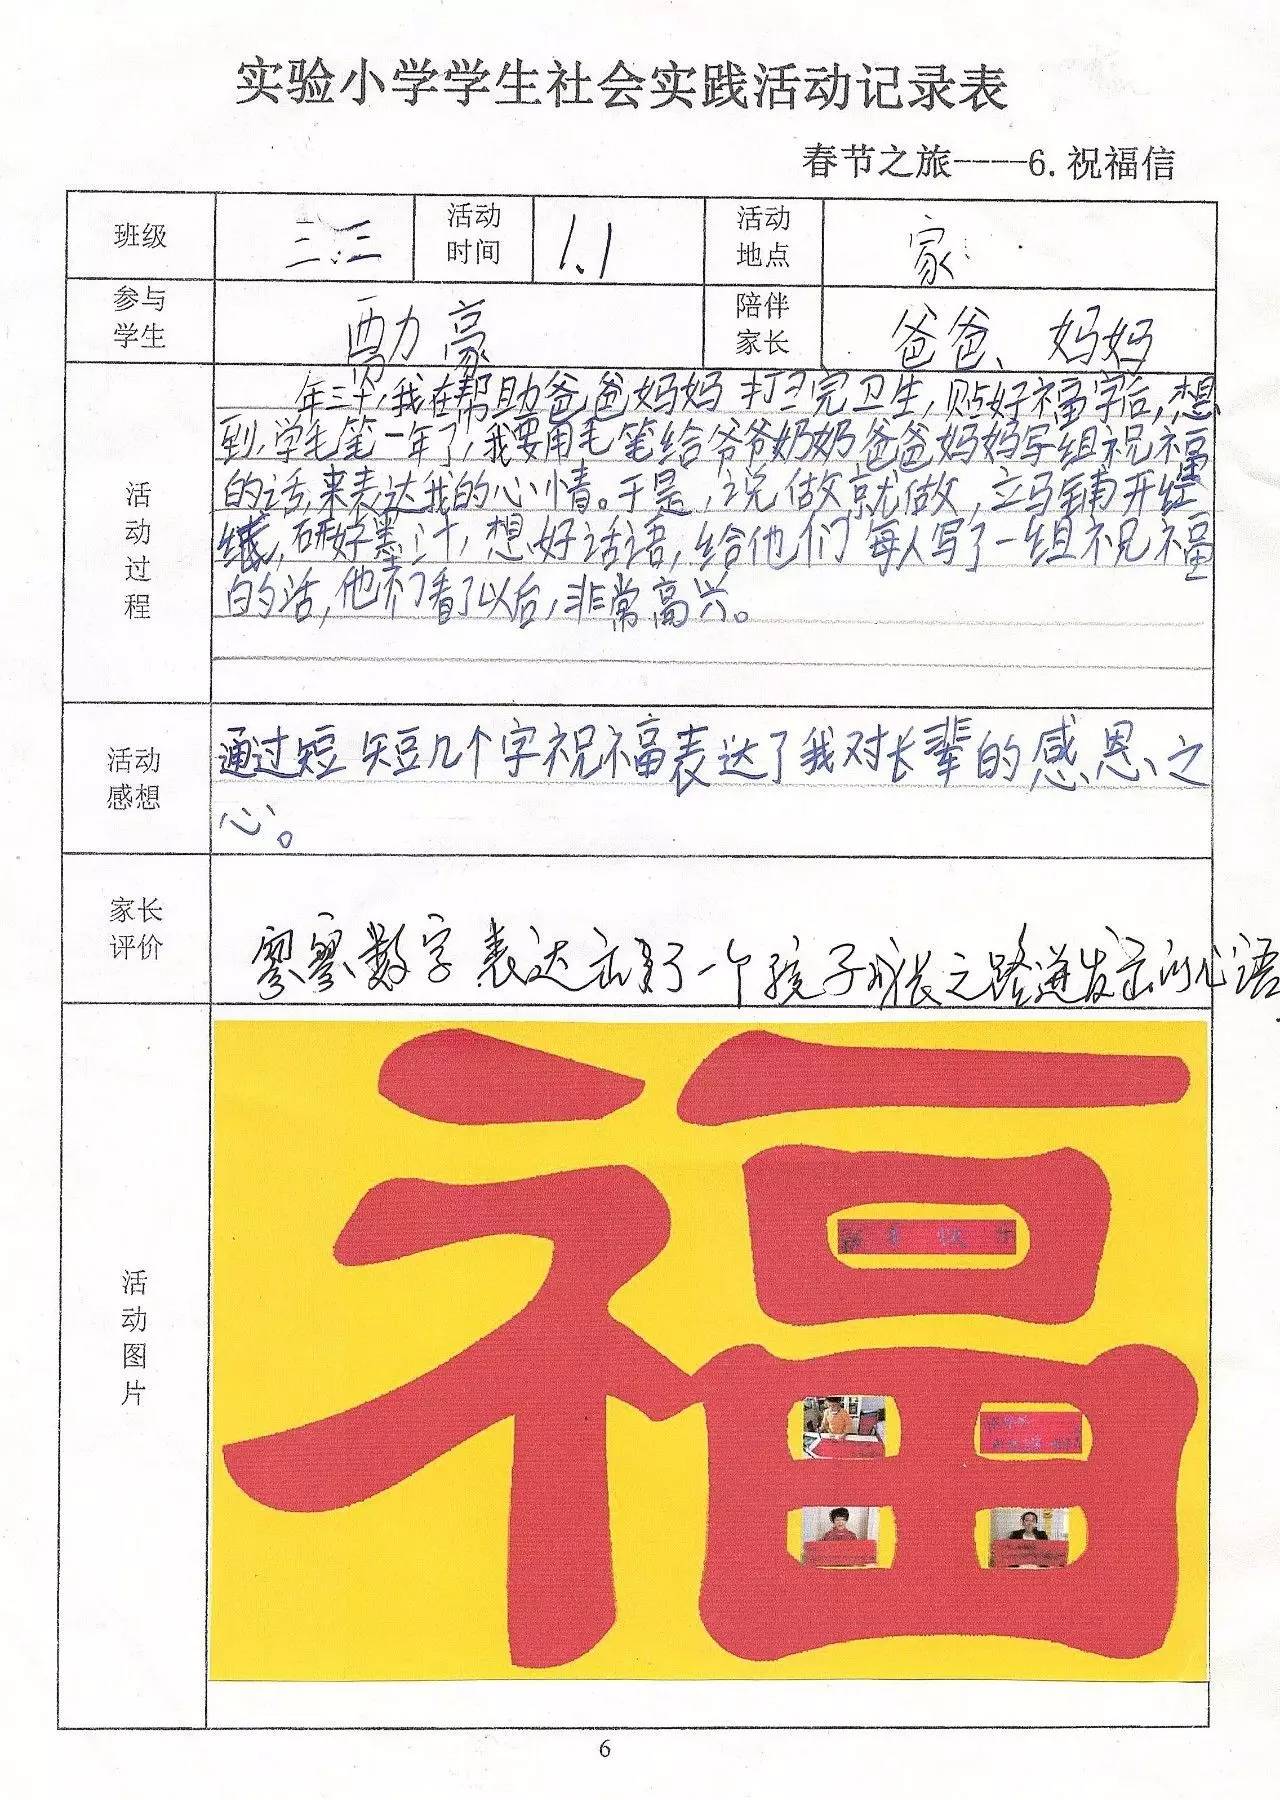 实验小学学生社会实践活动记录表
春节之旅----6.祝福信
班级 三.三 活动时间 1.1 活动地点 家
参与学生 豪 陪伴家长 爸爸、妈妈
活动过程
年三十，我在帮助爸爸妈妈打扫完卫生，贴好福字后，想
到，学毛笔一年了，我要用毛笔给爷爷奶奶爸爸妈妈写组祝福
的话，来表达我的心情。于是，说做就做，立马铺开红
纸，研好墨汁，想好话语，给他们每人写了一组祝福
的话，他们看了以后，非常高兴。
活动感想
通过短短几个字祝福表达了我对长辈的感恩之
心。
家长评价
寥寥数字表达出了一个孩子成长之路迸发出的心语
活动图片
福
新年快乐
6